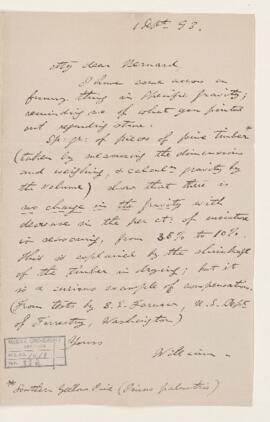 1 Sept. 93.
My dear Bernard
I have come across a
funny thing in specific gravity;
reminding me of what you pointed
out regarding stone.
Sp: gr: of pieces of pine timber*
(taken by measuring the dimensions
and weighing, & calcul— gravity by
the volume) show that there is
no change in the gravity with
decrease in the per ct: of moisture
in seasoning, from 38% to 10%.
This is explained by the shrinkage
of the timber in drying; but it
is a curious example of compensation.
(From tests by B. E. Fernow, U.S. Dept.
of Forrestry, Washington)
Yours
William
* Southern Yellow Pine (Pinus palustris)
McGILL UNIVERSITY